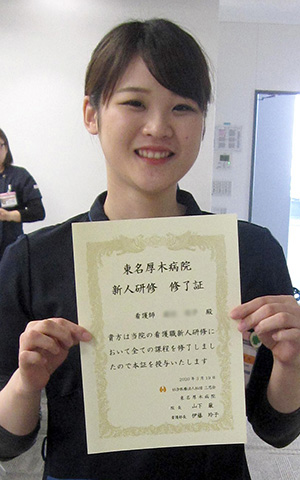 東名厚木病院
新人研修　修了証
看護師　殿
貴方は当院の看護職新人研修に
おいて全ての課程を修了しまし
たので本証を授与いたします
東名厚木病院
院長　山下　巌
看護部長　伊藤　玲子